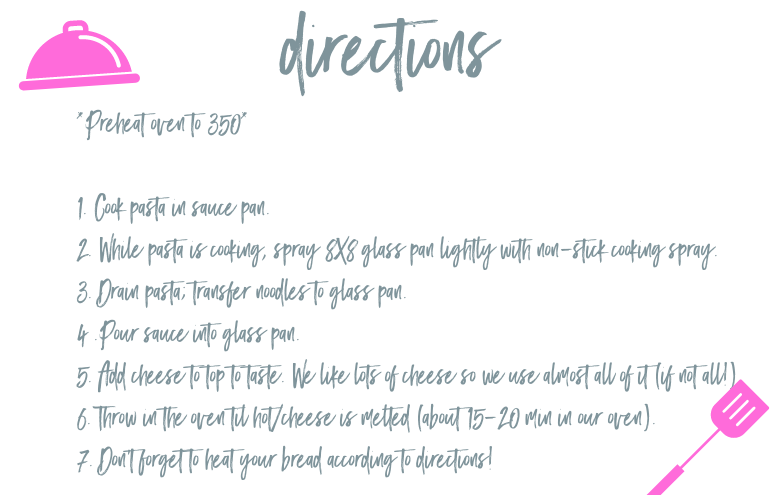 directions
*Preheat oven to 350*
1. Cook pasta in sauce pan.
2. While pasta is cooking, spray 8X8 glass pan lightly with non-stick cooking spray.
3. Drain pasta; transfer noodles to glass pan.
4 .Pour sauce into glass pan.
5. Add cheese to top to taste. We like lots of cheese so we use almost all of it (if not all!)
6. Throw in the oven til hot/cheese is melted (about 15-20 min in our oven).
7. Don't forget to heat your bread according to directions!